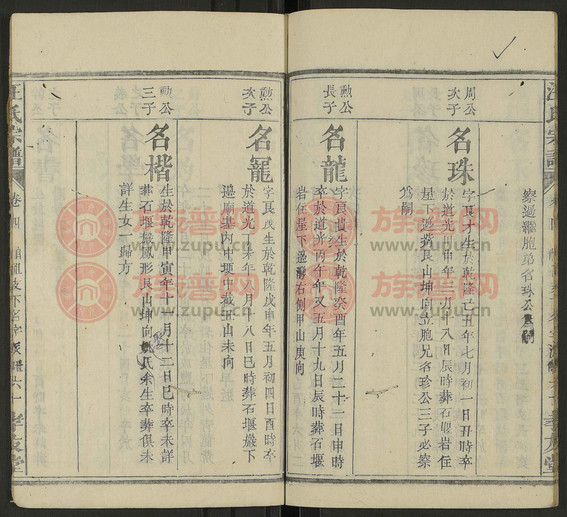 汪氏宗譜
察過繼胞弟名珍公為嗣
周公次子
名珠
字良才生於乾隆己丑年七月初一日丑時卒
於道光甲申年三月十八日辰時葬石堰岩住
屋下邊葬艮山坤向立胞兄名珍公三子必察
為嗣
勲公長子
名龍
字良貴生於乾隆癸酉年五月二十一日申時
卒於道光丙午年又五月十九日辰時葬石堰
岩住屋下邊灣右側甲山庚向
勲公次子
名寵
字良茂生於乾隆戊申年五月初四日酉時卒
於道光未年八月初八日巳時葬石堰巖下
邊廟基內中埂中截丑山未向
勲公三子
名楷
生於乾隆甲寅年十一月十二日巳時卒未詳
葬石堰艮山坤向氏余生卒葬俱未
詳生女一歸方
汪氏宗譜
卷四
六十一
孝友堂
族譜網
www.zupu.cn